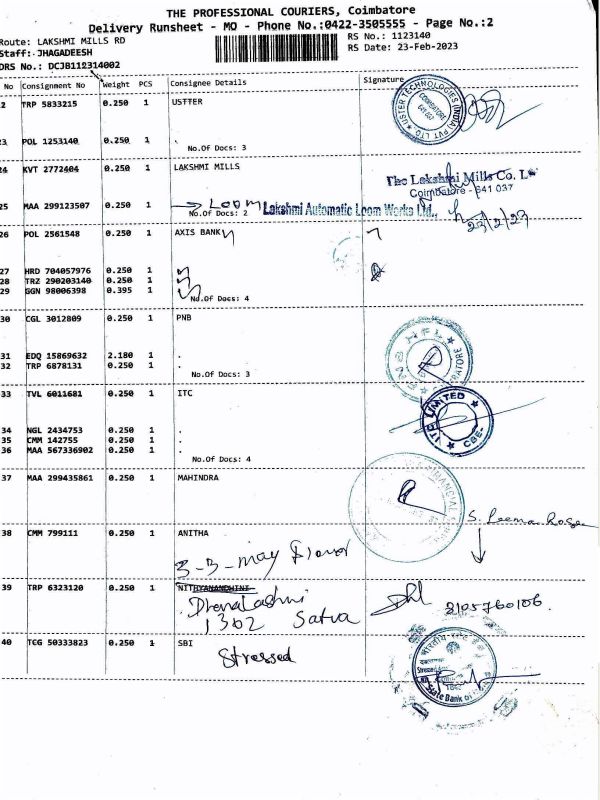 THE PROFESSIONAL COURIERS, Coimbatore
Delivery Runsheet - MO - Phone No.:0422-3505555 - Page No.:2
Route: LAKSHMI MILLS RD
RS No.: 1123140
Staff: JHAGADEESH
RS Date: 23-Feb-2023
DRS No.: DCJB112314002
No Consignment No Weight PCS Consignee Details Signature
2 TRP 5833215 0.250 1 USTTER
USTER TECHNOLOGIES (INDIA) PVT LTD
COIMBATORE
641 037
23 POL 1253140 0.250 1 .
No.Of Docs: 3
24 KVT 2772404 0.250 1 LAKSHMI MILLS
The Lakshmi Mills Co. L
Coimbatore - 641 037
25 MAA 299123507 0.250 1 → Loom
No.Of Docs: 2
Lakshmi Automatic Loom Works Ltd.,
23/2/23
26 POL 2561548 0.250 1 AXIS BANK
27 HRD 704057976 0.250 1
28 TRZ 290203140 0.250 1
29 GGN 98006398 0.395 1
No.Of Docs: 4
30 CGL 3012809 0.250 1 PNB
31 EDQ 15869632 2.180 1 .
32 TRP 6878131 0.250 1 .
No.Of Docs: 3
33 TVL 6011681 0.250 1 ITC
ITC LIMITED
CBE-
34 NGL 2434753 0.250 1 .
35 CMM 142755 0.250 1 .
36 MAA 567336902 0.250 1 .
No.Of Docs: 4
37 MAA 299435861 0.250 1 MAHINDRA
S. Leema Rose
38 CMM 799111 0.250 1 ANITHA
3-3-may flower
39 TRP 6323120 0.250 1 NITHYANANDHINI
DhanaLashmi
1302 Satva
8105760106.
40 TCG 50333823 0.250 1 SBI
Stressed
भारतीय स्टेट बैंक
State Bank of